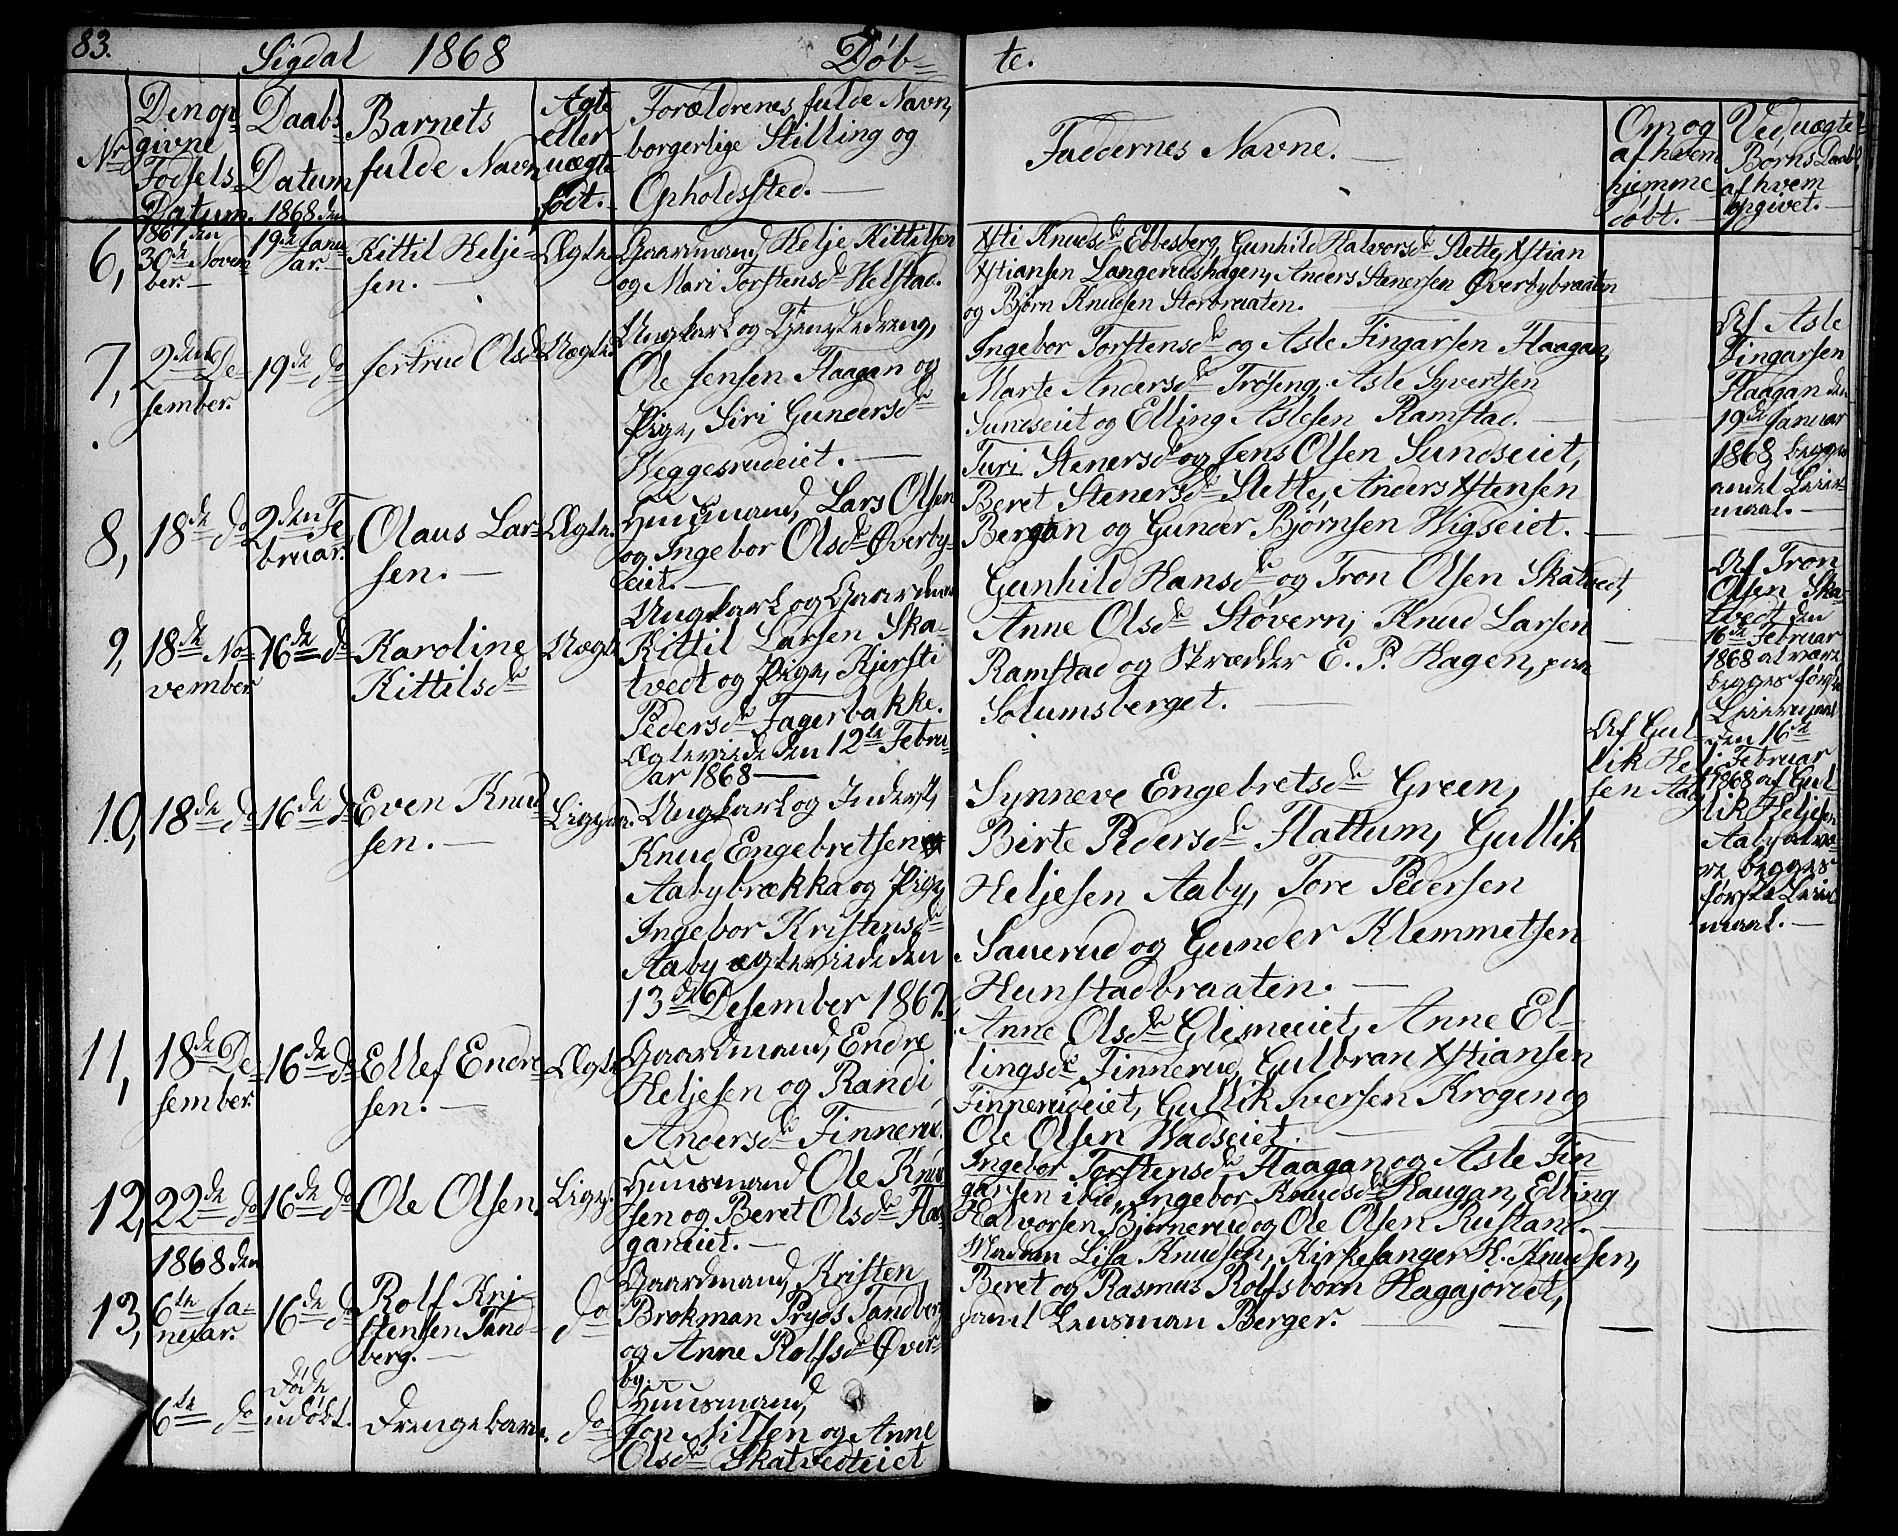 83.
Sigdal 1868 Døb-
te.
No
Den op-
givne
Fødsels-
Datum.
Daabs
Datum
1868 den
Barnets
fulde Navn
Ægte
eller
uægte
født.
Forældrenes fulde Navn,
borgerlige Stilling og
Opholdssted.
Faddernes Navne.
Om og
af hvem
hjemme
døbt.
Ved uægte
Børns Daab,
af hvem
opgivet.
6,
1867 den
30de Novem-
ber.
19de Janu-
ar.
Kittil Helje-
sen.
Ægte.
Gaardmand, Helje Kittilsen
og Mari Torstensd. Helstad.
Xsti Knudsd. Ebbesberg, Gunhild Halvorsd. Slette, Xstian
Xstiansen Langerudshagen, Anders Stenersen Øverbybraaten
og Bjørn Knudsen Storbraaten.
7,
2den De-
sember.
19de do
Jertrud Olsd.
Uægte.
Ungkarl og Tjenestedreng,
Ole Jensen Haagan og
Pige, Siri Gundersd.
Weggesrudeiet.
Ingebor Torstensd. og Asle Fingarsen Haagan,
Marte Andersd. Trøseng, Asle Syvertsen
Sundseiet og Elling Aslesen Ramstad.
Af Asle
Fingarsen
Haagan den
19de Januar
1868 begges
andet Leier-
maal.
8,
18de do
2den Fe-
bruar.
Olaus Lar-
sen.
Ægte.
Huusmand, Lars Olsen
og Ingebor Olsd. Øverby-
eiet.
Turi Stenersd. og Jens Olsen Sundseiet,
Beret Stenersd. Slette, Anders Xstensen
Bergan og Gunder Bjørnsen Wigseiet.
9,
18de No-
vember
16de do
Karoline
Kittilsd.
Uægte
Ungkarl og Gaardman
Kittil Larsen Ska-
tvedt og Pige, Kjersti
Pedersd. Fagerbakke.
Ægteviede den 12te Febru-
ar 1868
Gunhild Hansd. og Tron Olsen Skatvedt,
Anne Olsd. Støvern, Knud Larsen
Ramstad og Skrædder E. P. Hagen, paa
Solumsberget.
Af Tron
Olsen Ska-
tvedt den
16de Februar
1868 at være
begges første
Leiermaal
10,
18de do
16de do
Even Knud
sen.
Ligger.
Ungkarl og Inderst,
Knud Engebretsen
Aabybrækka og Pige,
Ingebor Kristensd.
Aaby ægteviede den
13de Desember 1867.
Synneve Engebretsd. Green,
Birte Pedersd. Flattum, Gullik
Heljesen Aaby, Tore Pedersen
Sauerud og Gunder Klemmetsen
Hunstadbraaten.
Af Gul-
lik Hel-
sen Aaby
den 16de
Februar
1868 af Gul-
lik Heljesen
Aaby at væ-
re begges
første Leier
maal.
11,
18de De-
sember.
16de do
Ellef Endre-
sen.
Ægte
Gaardmand, Endre
Heljesen og Randi
Andersd. Finnerud.
Anne Olsd. Glesneeiet, Anne El-
lingsd. Finnerud, Gulbran Xstiansen
Finnerudeiet, Gullik Iversen Krogen og
Ole Olsen Wadseiet.
12,
22de do
16de do
Ole Olsen.
Ligg.
Huusmand Ole Knud
sen og Beret Olsd. Haa-
ganeiet.
Ingebor Torstensd. Haagan og Asle Fin-
garsen ibid, Ingebor Knudsd. Haugan, Elling
Halvorsen Bjørnerud og Ole Olsen Rustand.
13,
1868 den
6te Ja-
nuar.
16de do
Rolf Kri-
stensen Tand-
berg.
do
Gaardmand, Kristen
Brokman Pryds Tandberg
og Anne Rolfsd. Øver-
by.
Madam Lisa Knudson, Kirkesanger H. Knudsen,
Beret og Rasmus Rolfsbørn Hagajordet,
samt Lensman Berger.
6te do
Føde
udøbt.
Drengebarn.
do
Huusmand,
Jon Nilsen og Anne
Olsd. Skatvedteiet